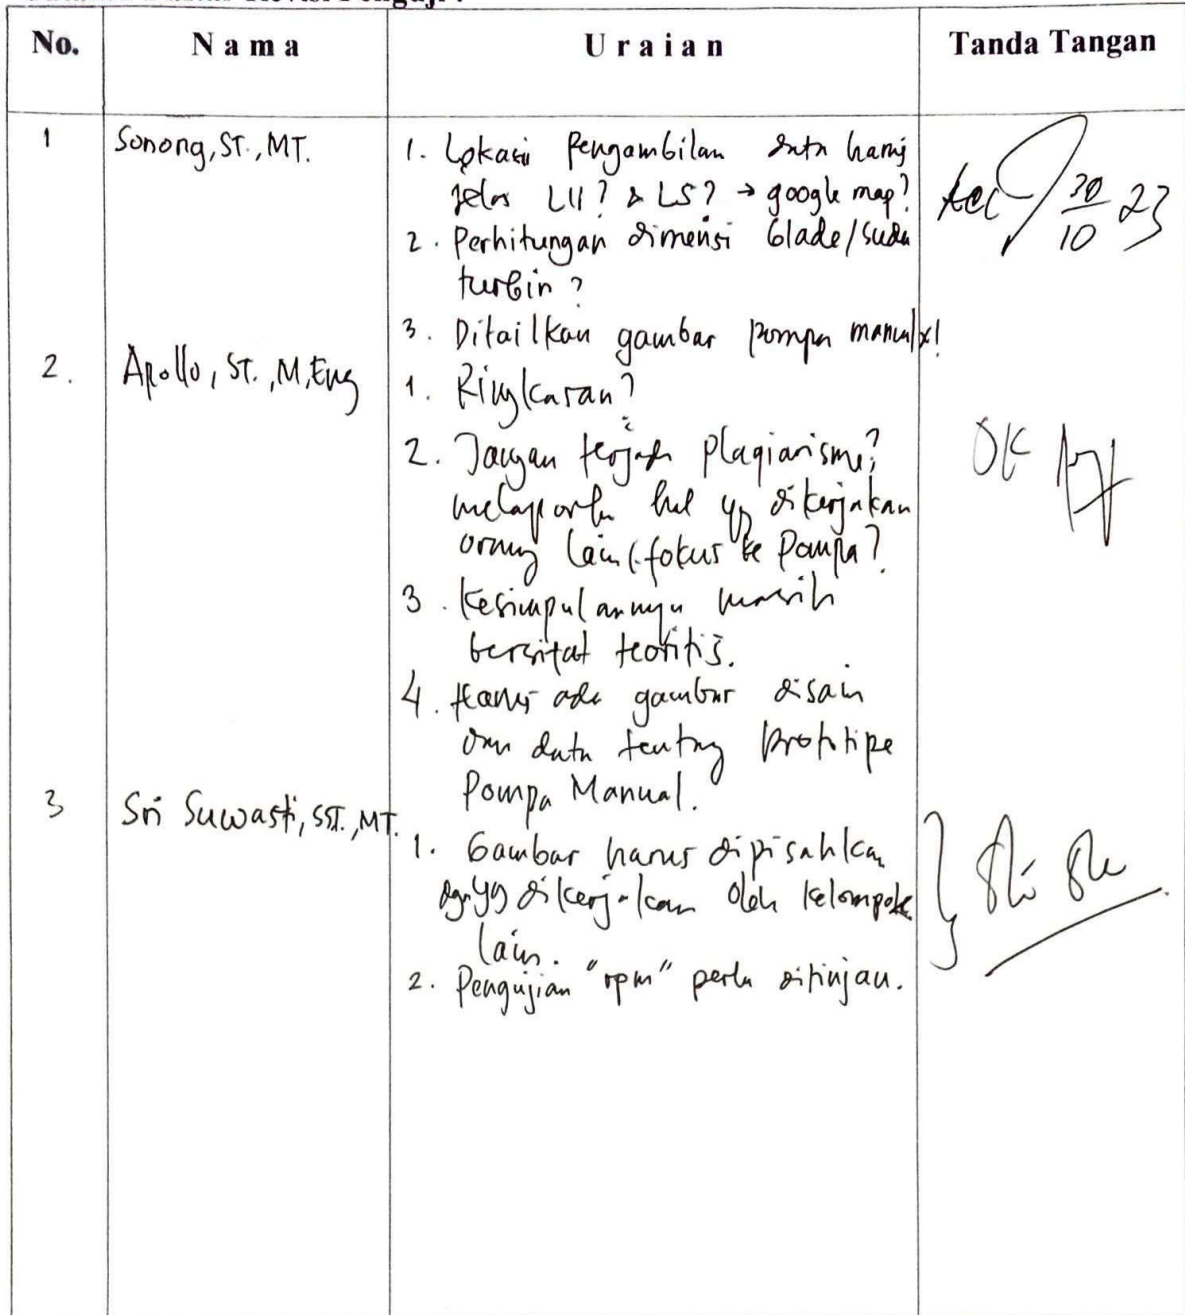 No. Nama Uraian Tanda Tangan
1 Sonong, ST., MT. 1. Lokasi Pengambilan data harus
jelas LU? & LS? → google map?
Acc 30/10 23
2. Perhitungan dimensi blade/sudu
turbin?
3. Ditailkan gambar pompa manual!
2. Apollo, ST., M.Eng 1. Ringkasan?
2. Jangan terjadi plagiarisme?
hal yg dikerjakan
orang lain (fokus ke Pompa?
OK
3. Kesimpulannya masih
bersifat teoritis.
4. Harus ada gambar disain
dan data tentang prototipe
Pompa Manual.
3 Sri Suwasti, SST., MT.
1. Gambar harus dipisahkan
dgn yg dikerjakan oleh kelompok
lain.
2. Pengujian "rpm" perlu ditinjau.